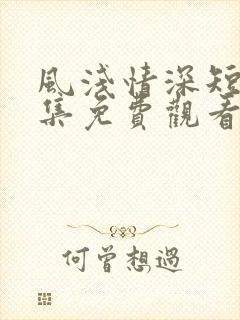 風淺情深短
集免費觀看
何曾想過